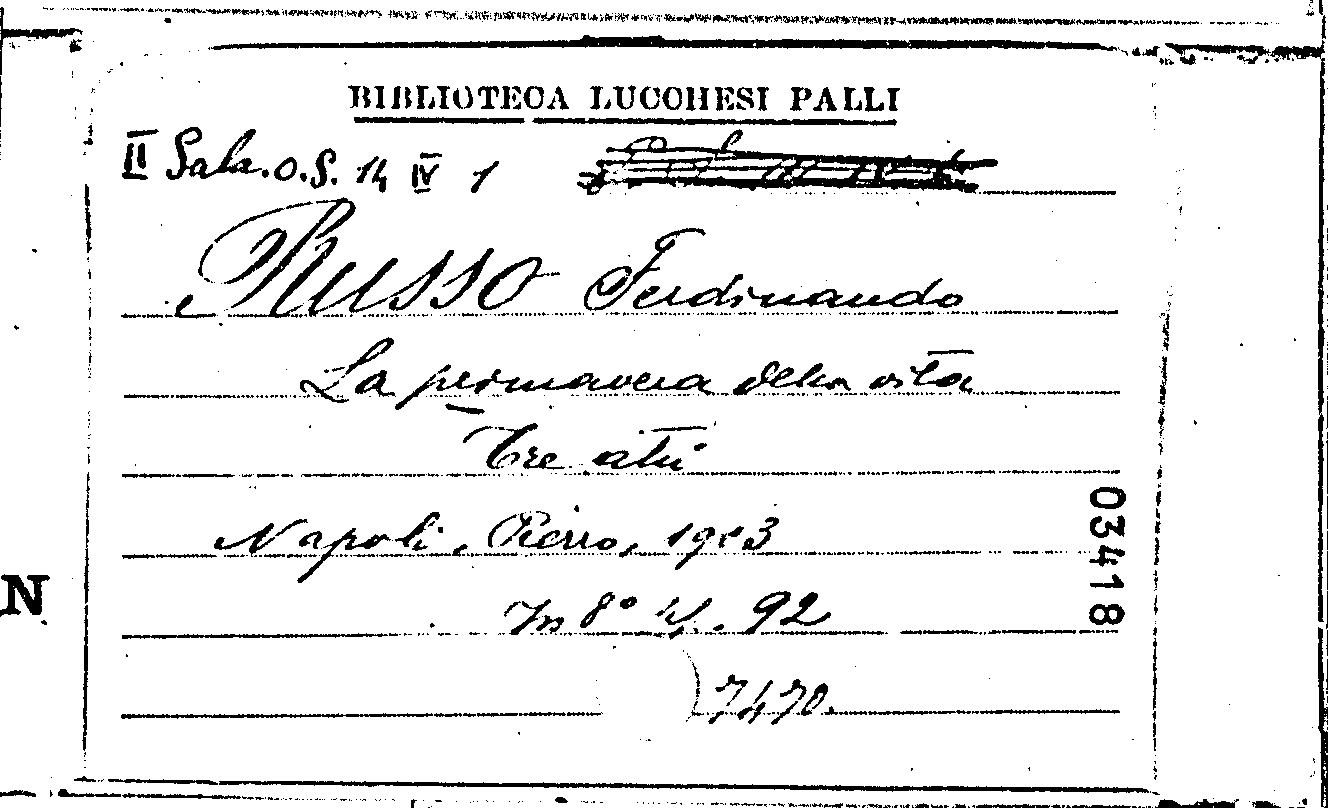 BIBLIOTECA LUCCHESI PALLI
II Sala. O.S. 14 IV 1
RUSSO Ferdinando
La primavera della vita
Tre atti
Napoli, Pierro, 1903
In 8° 92
7470.
03418
N